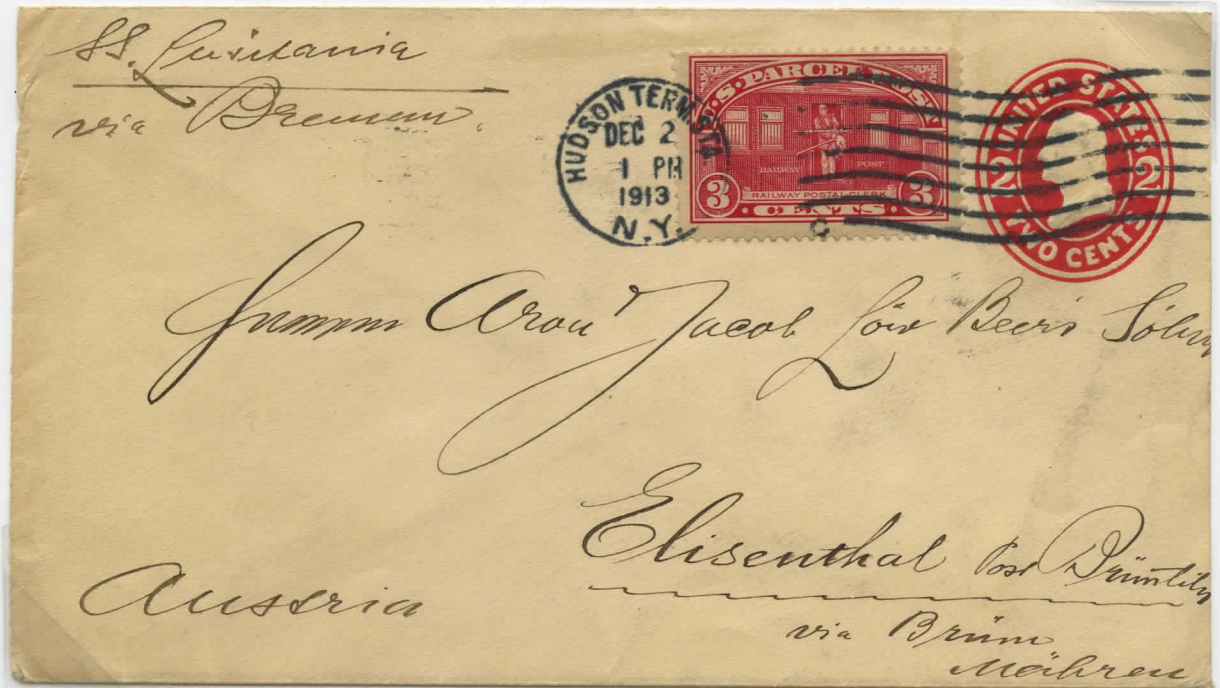 SS. Lusitania
via Bremen.
HUDSON TERM. STA.
DEC 2
1 PM
1913
N.Y.
U.S. PARCEL POST
RAILWAY POST
3 RAILWAY POSTAL CLERK 3
CENTS
UNITED STATES
2 2
TWO CENTS
C
Aron Jacob Löw Beer's Söhne
Elisenthal Post Brünnlitz
via Brünn
Mähren
Austria